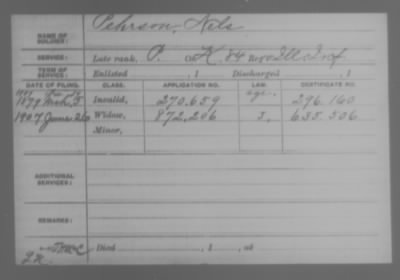 NAME OF SOLDIER: Pehrson, Nels
SERVICE: Late rank, P. Co K. 84 Reg't Ill. Inf
TERM OF SERVICE: Enlisted , 1 Discharged , 1
DATE OF FILING. CLASS. APPLICATION NO. LAW. CERTIFICATE NO.
1879 Mch. 5 Invalid, 270.659 296.160
1907 June 26 Widow, 872,206 635.506
Minor,
ADDITIONAL SERVICES:
REMARKS:
Died , 1 , at